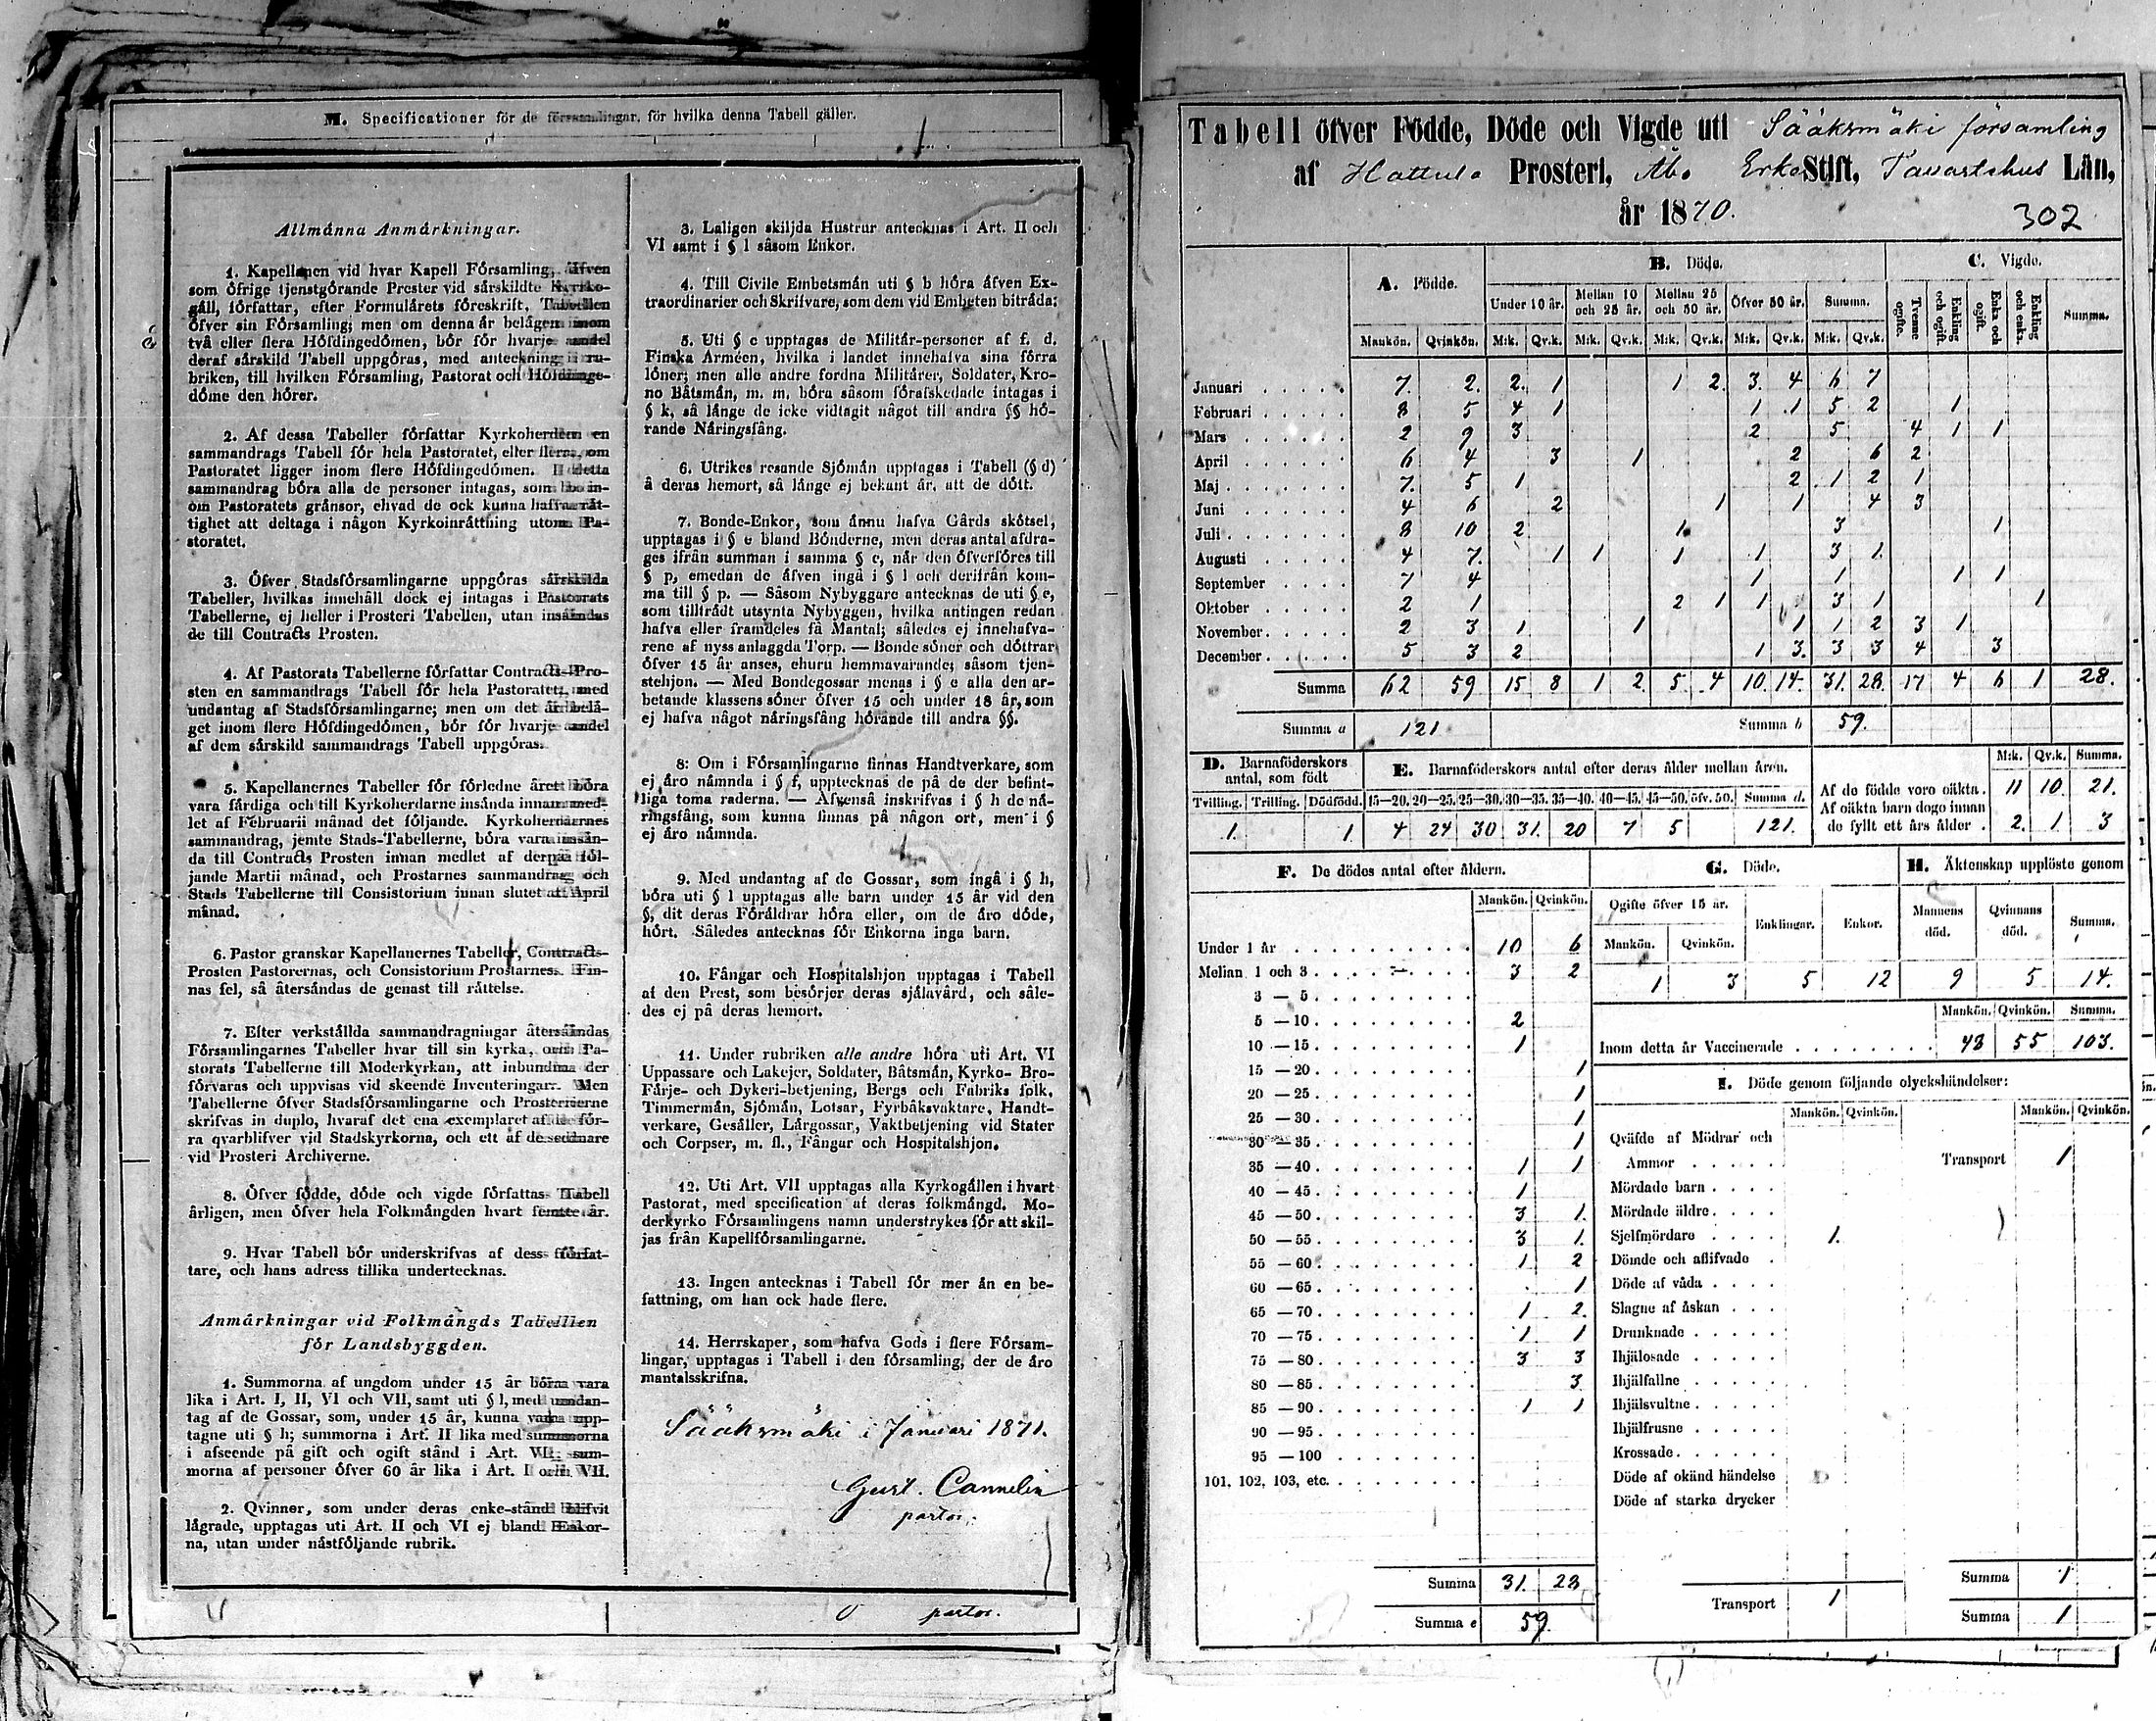 M. Specificationer för de församlingar, för hvilka denna Tabell gäller.
Allmänna Anmärkningar.
1. Kapellanen vid hvar Kapell Församling, äfven
som öfrige tjenstgörande Prester vid särskildte Kyrko-
gäll, författar, efter Formulärets föreskrift, Tabellen
öfver sin Församling; men om denna är belägen inom
två eller flera Höfdingedömen, bör för hvarje andel
deraf särskild Tabell uppgöras, med anteckning i ru-
briken, till hvilken Församling, Pastorat och Höfdinge-
döme den hörer.
2. Af dessa Tabeller författar Kyrkoherden en
sammandrags Tabell för hela Pastoratet, eller flera, om
Pastoratet ligger inom flere Höfdingedömen. I detta
sammandrag böra alla de personer intagas, som bo in-
om Pastoratets gränsor, ehvad de ock kunna hafva rät-
tighet att deltaga i någon Kyrkoinrättning utom Pa-
storatet.
3. Öfver Stadsförsamlingarne uppgöras särskilda
Tabeller, hvilkas innehåll dock ej intagas i Pastorats
Tabellerne, ej heller i Prosteri Tabellen, utan insändas
de till Contracts Prosten.
4. Af Pastorats Tabellerne författar Contracts-Pro-
sten en sammandrags Tabell för hela Pastoratet, med
undantag af Stadsförsamlingarne; men om det är belä-
get inom flere Höfdingedömen, bör för hvarje andel
af dem särskild sammandrags Tabell uppgöras.
5. Kapellanernes Tabeller för förledne året böra
vara färdiga och till Kyrkoherdarne insända innan med-
let af Februarii månad det följande. Kyrkoherdarnes
sammandrag, jemte Stads-Tabellerne, böra vara insän-
da till Contracts Prosten innan medlet af derpå föl-
jande Martii månad, och Prostarnes sammandrag och
Stads Tabellerne till Consistorium innan slutet af April
månad.
6. Pastor granskar Kapellanernes Tabeller, Contracts-
Prosten Pastorernas, och Consistorium Prostarnes. Fin-
nas fel, så återsändas de genast till rättelse.
7. Efter verkställda sammandragningar återsändas
Församlingarnes Tabeller hvar till sin kyrka, och Pa-
storats Tabellerne till Moderkyrkan, att inbundna der
förvaras och uppvisas vid skeende Inventeringar. Men
Tabellerne öfver Stadsförsamlingarne och Prosterierne
skrifvas in duplo, hvaraf det ena exemplaret af de för-
ra qvarblifver vid Stadskyrkorna, och ett af de sednare
vid Prosteri Archiverne.
8. Öfver födde, döde och vigde författas Tabell
årligen, men öfver hela Folkmängden hvart femte år.
9. Hvar Tabell bör underskrifvas af dess förfat-
tare, och hans adress tillika undertecknas.
Anmärkningar vid Folkmängds Tabellen
för Landsbyggden.
1. Summorna af ungdom under 15 år böra vara
lika i Art. I, II, VI och VII, samt uti § l, med undan-
tag af de Gossar, som, under 15 år, kunna vara upp-
tagne uti § h; summorna i Art. II lika med summorna
i afseende på gift och ogift stånd i Art. VI; sum-
morna af personer öfver 60 år lika i Art. I och VII.
2. Qvinnor, som under deras enke-stånd blifvit
lägrade, upptagas uti Art. II och VI ej bland Enkor-
na, utan under nästföljande rubrik.
3. Laligen skiljda Hustrur antecknas i Art. II och
VI samt i § l såsom Enkor.
4. Till Civile Embetsmän uti § b höra äfven Ex-
traordinarier och Skrifvare, som dem vid Embeten biträda;
5. Uti § c upptagas de Militär-personer af f. d.
Finska Arméen, hvilka i landet innehafva sina förra
löner; men alle andre fordna Militärer, Soldater, Kro-
no Båtsmän, m. m. böra såsom förafskedade intagas i
§ k, så länge de icke vidtagit något till andra §§ hö-
rande Näringsfång.
6. Utrikes resande Sjömän upptagas i Tabell (§ d)
å deras hemort, så länge ej bekant är, att de dött.
7. Bonde-Enkor, som ännu hafva Gårds skötsel,
upptagas i § e bland Bönderne, men deras antal afdra-
ges ifrån summan i samma § e, når den öfverföres till
§ p, emedan de äfven ingå i § l och derifrån kom-
ma till § p. — Såsom Nybyggare antecknas de uti § e,
som tillträdt utsynta Nybyggen, hvilka antingen redan
hafva eller framdeles få Mantal; således ej innehafva-
rene af nyss anlaggda Torp. — Bonde söner och döttrar
öfver 15 år anses, ehuru hemmavarande; såsom tjen-
stehjon. — Med Bondegossar menas i § e alla den ar-
betande klassens söner öfver 15 och under 18 år, som
ej hafva något näringsfång hörande till andra §§.
8: Om i Församlingarne finnas Handtverkare, som
ej äro nämnda i § f, upptecknas de på de der befint-
liga toma raderna. — Äfvenså inskrifvas i § h de nä-
ringsfång, som kunna finnas på någon ort, men i §
ej äro nämnda.
9. Med undantag af de Gossar, som ingå i § h,
böra uti § l upptagas alle barn under 15 år vid den
§, dit deras Föräldrar höra eller, om de äro döde,
hört. Således antecknas för Enkorna inga barn.
10. Fångar och Hospitalshjon upptagas i Tabell
af den Prest, som besörjer deras själavård, och såle-
des ej på deras hemort.
11. Under rubriken alle andre höra uti Art. VI
Uppassare och Lakejer, Soldater, Båtsmän, Kyrko- Bro-
Färje- och Dykeri-betjening, Bergs och Fabriks folk,
Timmermän, Sjömän, Lotsar, Fyrbåksvaktare, Handt-
verkare, Gesäller, Lärgossar, Vaktbetjening vid Stater
och Corpser, m. fl., Fångar och Hospitalshjon.
12. Uti Art. VII upptagas alla Kyrkogällen i hvart
Pastorat, med specification af deras folkmängd. Mo-
derkyrko Församlingens namn understrykes för att skil-
jas från Kapellförsamlingarne.
13. Ingen antecknas i Tabell för mer än en be-
fattning, om han ock hade flere.
14. Herrskaper, som hafva Gods i flere Försam-
lingar, upptagas i Tabell i den församling, der de äro
mantalsskrifna.
Sääksmäki i Januari 1871.
Gust. Cannelin
pastor.
pastor.
Tabell öfver Födde, Döde och Vigde uti Sääksmäki församling
af Hattula Prosteri, Åbo Erke Stift, Tavastehus Län,
år 1870.
302
A. Födde. B. Döde. C. Vigde.
Under 10 år. Mellan 10 och 25 år. Mellan 25 och 50 år. Öfver 50 år. Summa. Tvenne ogifte. Enkling och ogift. Enka och ogift. Enkling och enka. Summa.
Mankön. Qvinkön. M:k. Qv.k. M:k. Qv.k. M:k. Qv.k. M:k. Qv.k. M:k. Qv.k.
Januari 7. 2. 2. 1 1 2. 3. 4 6 7
Februari 8 5 4 1 1 1 5 2 1
Mars 2 9 3 2 5 4 1 1
April 6 4 3 1 2 6 2
Maj 7. 5 1 2 1 2 1
Juni 4 6 2 1 1 4 3
Juli 8 10 2 1 3 1
Augusti 4 7. 1 1 1 1 3 1
September 7 4 1 1 1 1
Oktober 2 1 2 1 1 3 1 1
November 2 3 1 1 1 1 2 3 1
December 5 3 2 1 3. 3 3 4 3
Summa 62 59 15 8 1 2. 5 4 10 14. 31. 28. 17 4 6 1 28.
Summa a 121 Summa b 59.
D. Barnaföderskors antal, som födt
Tvilling. Trilling. Dödfödd.
1. 1.
E. Barnaföderskors antal efter deras ålder mellan åren.
15—20. 20—25. 25—30. 30—35. 35—40. 40—45. 45—50. öfv. 50. Summa d.
4 24 30 31. 20 7 5 121.
M:k. Qv.k. Summa.
Af de födde voro oäkta. 11 10. 21.
Af oäkta barn dogo innan
de fyllt ett års ålder . 2. 1 3
F. De dödes antal efter åldern.
Mankön. Qvinkön.
Under 1 år 10 6
Mellan 1 och 3 3 2
3 — 5
5 — 10 2
10 — 15 1
15 — 20 1
20 — 25 1
25 — 30 1
30 — 35 1
35 — 40 1 1
40 — 45 1
45 — 50 3 1.
50 — 55 3 1.
55 — 60 1 2
60 — 65 1
65 — 70 1 2.
70 — 75 1 1
75 — 80 3 3
80 — 85 3
85 — 90 1 1
90 — 95
95 — 100
101, 102, 103, etc.
Summa 31. 28
Summa e 59.
G. Döde.
Ogifte öfver 15 år. Enklingar. Enkor.
Mankön. Qvinkön.
1 3 5 12
H. Äktenskap upplöste genom
Mannens död. Qvinnans död. Summa.
9 5 14.
Mankön. Qvinkön. Summa.
Inom detta år Vaccinerade 48 55 103.
I. Döde genom följande olyckshändelser:
Mankön. Qvinkön. Mankön. Qvinkön.
Qväfde af Mödrar och
Ammor Transport 1
Mördade barn
Mördade äldre
Sjelfmördare 1.
Dömde och aflifvade
Döde af våda
Slagne af åskan
Drunknade
Ihjälosade
Ihjälfallne
Ihjälsvultne
Ihjälfrusne
Krossade
Döde af okänd händelse
Döde af starka drycker
Transport 1
Summa 1
Summa 1